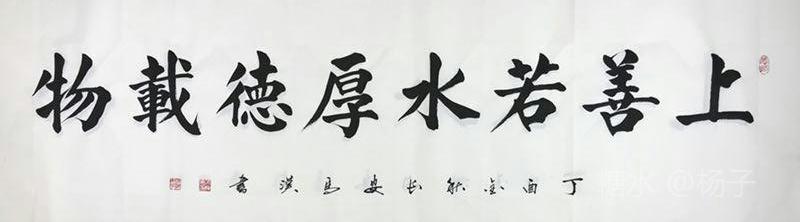 上善若水厚德載物
丁酉金秋长安马漢書
@杨子